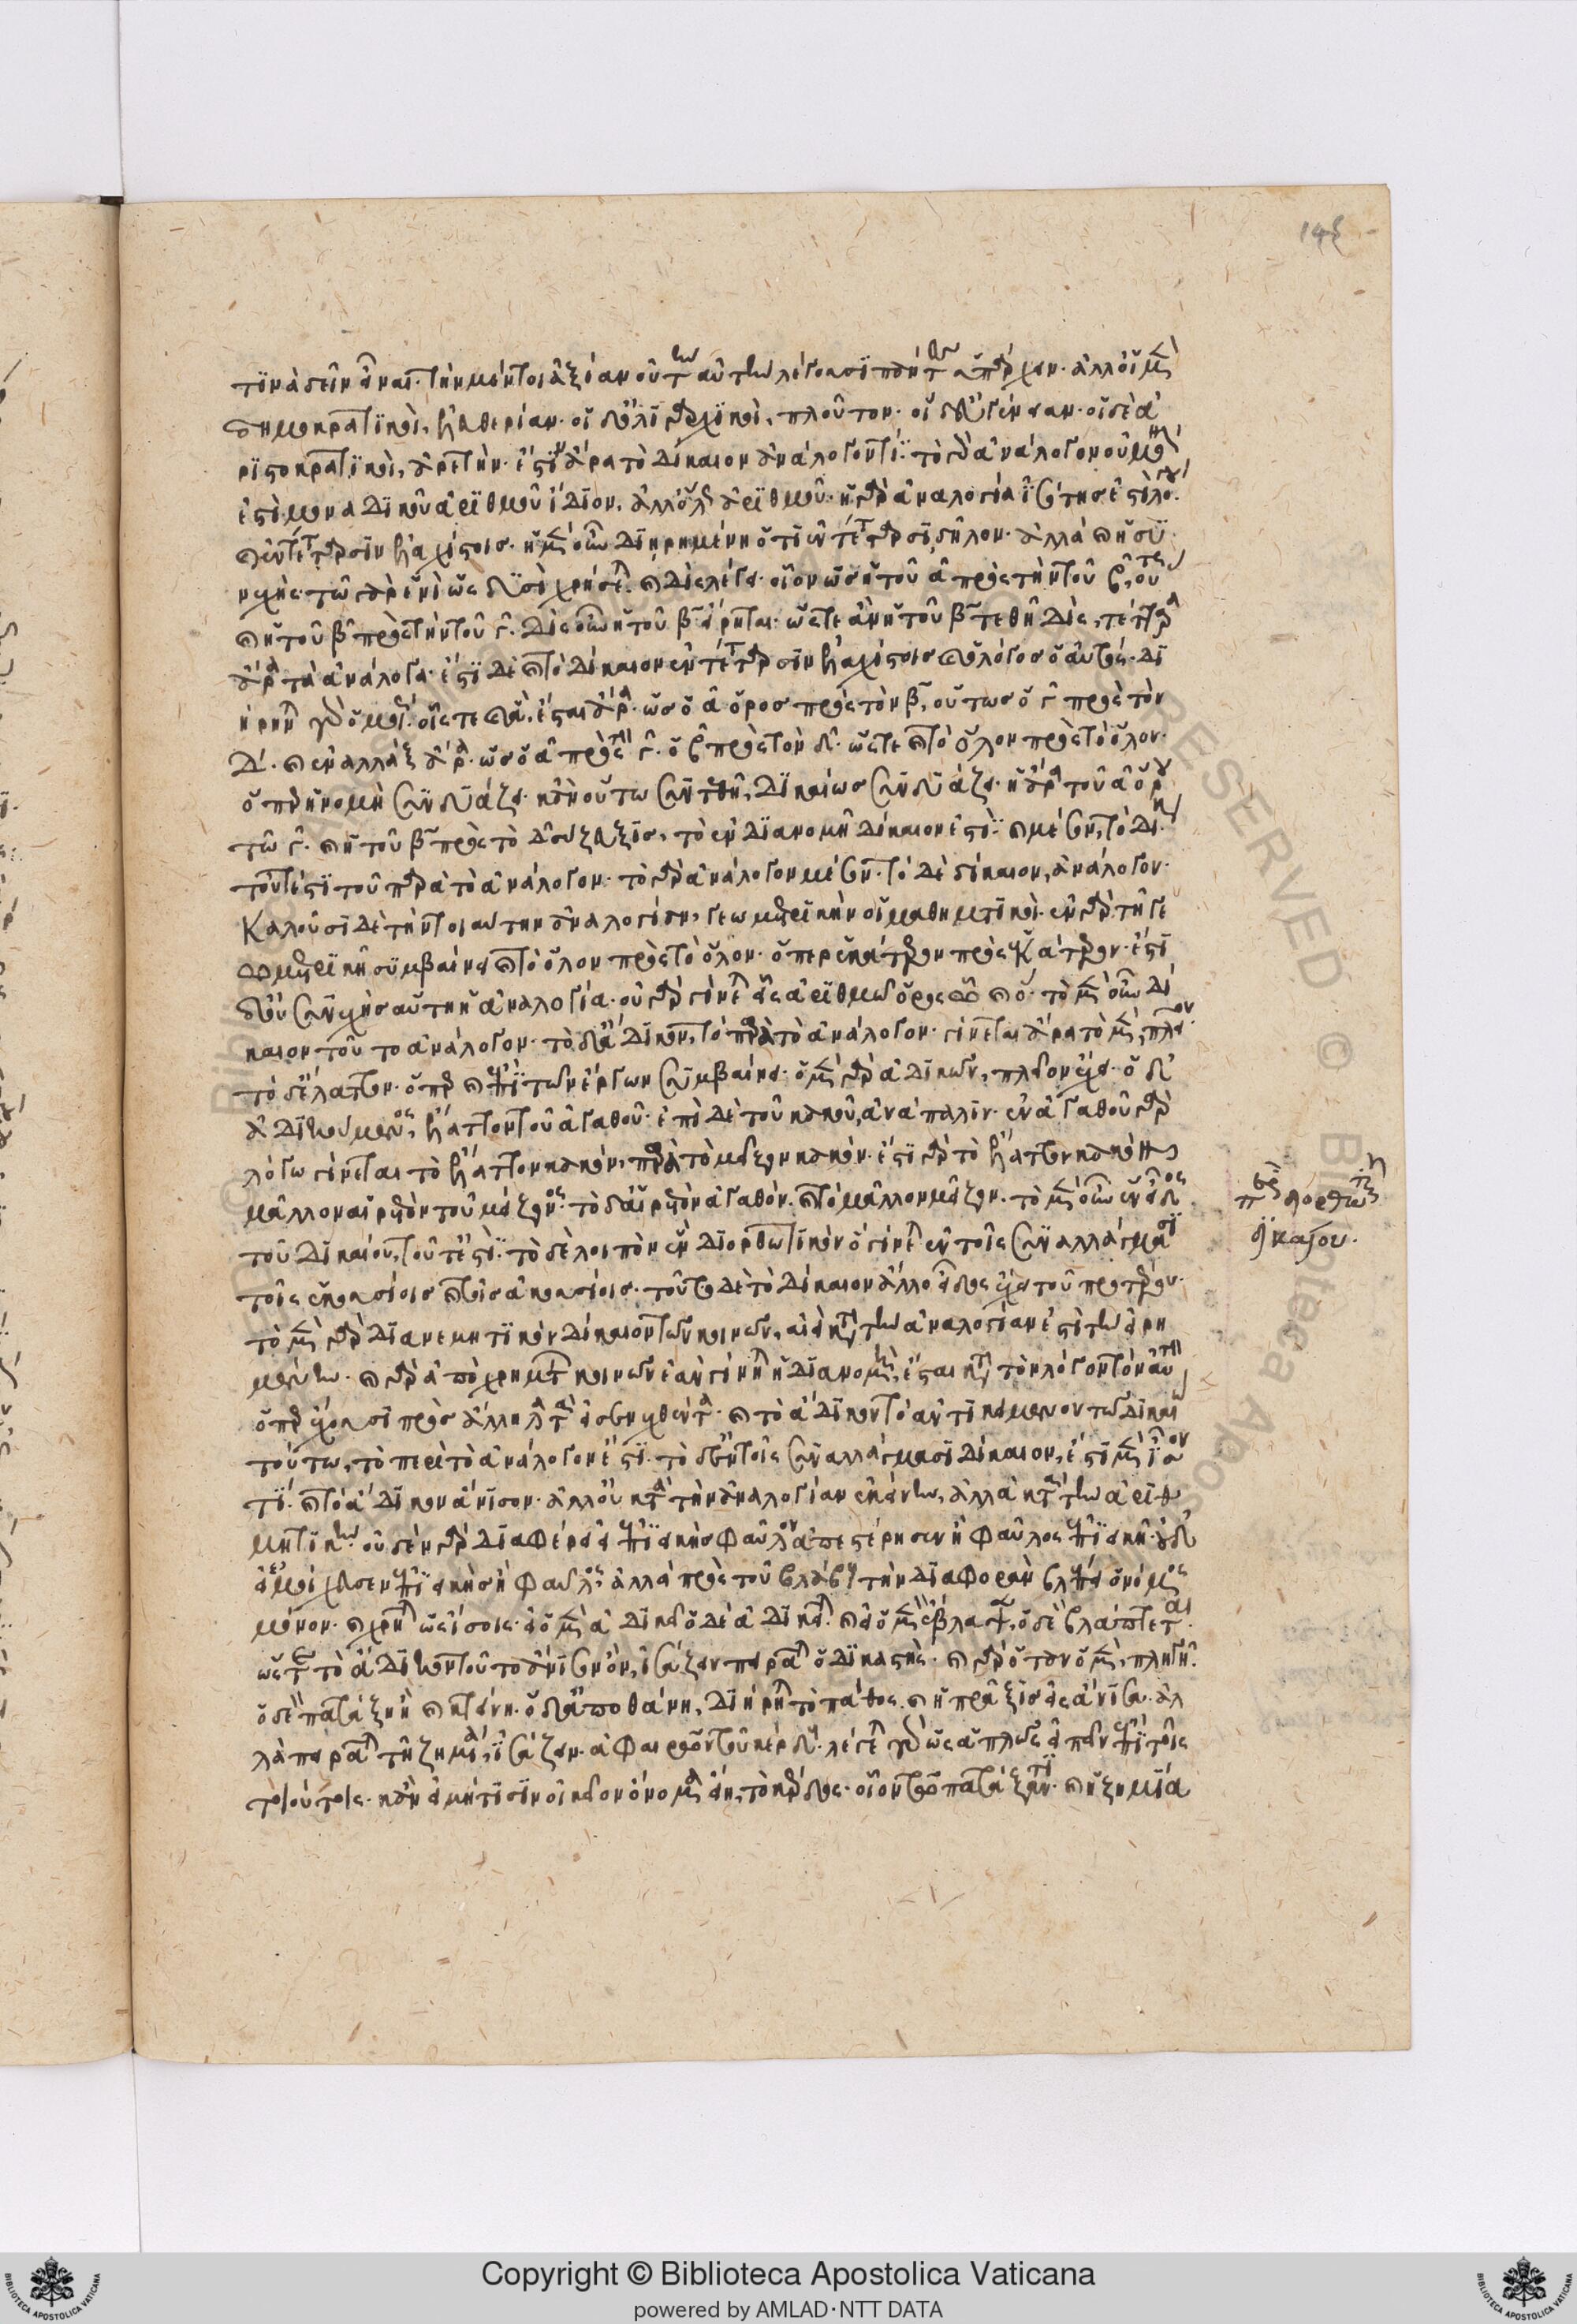 τινὰ δεῖν εἶναι· τὴν μέντοι ἀξίαν οὐ τὴν αὐτὴν λέγουσι πάντες ὑπάρχειν· ἀλλ' οἱ μὲν
δημοκρατικοὶ, ἐλευθερίαν· οἱ δ' ὀλιγαρχικοὶ, πλοῦτον· οἱ δ' εὐγένειαν· οἱ δὲ ἀ
ριστοκρατικοὶ, ἀρετήν· ἔστιν ἄρα τὸ δίκαιον ἀνάλογόν τι· τὸ γὰρ ἀνάλογον οὐ μόνον
ἐστὶ μοναδικοῦ ἀριθμοῦ ἴδιον, ἀλλ' ὅλως ἀριθμοῦ· ἡ γὰρ ἀναλογία ἰσότης ἐστὶ λόγου·
καὶ ἐν τέτταρσιν ἐλαχίστοις· ἡ μὲν οὖν διῃρημένη ὅτι ἐν τέτταρσι, δῆλον· ἀλλὰ καὶ ἡ συ
νεχής· τῷ γὰρ ἑνὶ ὡς δυσὶ χρῆται καὶ δὶς λέγει· οἷον ὡς ἡ τοῦ α πρὸς τὴν τοῦ β, οὕτως
καὶ ἡ τοῦ β πρὸς τὴν τοῦ γ· δὶς οὖν ἡ τοῦ β εἴρηται· ὥστε ἐὰν ἡ τοῦ β τεθῇ δὶς, τέτταρα
ἄρα τὰ ἀνάλογα· ἔστι δὲ καὶ τὸ δίκαιον ἐν τέτταρσιν ἐλαχίστοις καὶ ὁ λόγος ὁ αὐτός· δι
ῄρηνται γὰρ ὁμοίως οἷς τε καὶ ἃ, ἔσται ἄρα ὡς ὁ α ὅρος πρὸς τὸν β, οὕτως ὁ γ πρὸς τὸν
δ· καὶ ἐναλλὰξ ἄρα ὡς ὁ α πρὸς τὸν γ· ὁ β πρὸς τὸν δ· ὥστε καὶ τὸ ὅλον πρὸς τὸ ὅλον·
ὅπερ ἡ νομὴ συνδυάζει· κἂν οὕτω συντεθῇ, δικαίως συνδυάζει· ἡ ἄρα τοῦ α ὅρου
τῷ γ· καὶ ἡ τοῦ β πρὸς τὸ δ σύζευξις, τὸ ἐν διανομῇ δίκαιόν ἐστι· καὶ μέσον, τὸ δίκαιον
τοῦτ' ἐστὶ τοῦ παρὰ τὸ ἀνάλογον· τὸ γὰρ ἀνάλογον μέσον· τὸ δὲ δίκαιον, ἀνάλογον·
Καλοῦσι δὲ τὴν τοιαύτην ἀναλογίαν, γεωμετρικὴν οἱ μαθηματικοὶ· ἐν γὰρ τῇ γε
ωμετρικῇ συμβαίνει καὶ τὸ ὅλον πρὸς τὸ ὅλον· ὅπερ ἑκάτερον πρὸς ἑκάτερον· ἔστι
δ' οὐ συνεχὴς αὕτη ἡ ἀναλογία· οὐ γὰρ γίνεται εἷς ἀριθμῷ ὅρος ᾧ καὶ ὅ· τὸ μὲν οὖν δί
καιον τοῦτο ἀνάλογον· τὸ δ' ἄδικον, τὸ παρὰ τὸ ἀνάλογον· γίνεται ἄρα τὸ μὲν, πλέον
τὸ δ' ἔλαττον· ὅπερ καὶ ἐπὶ τῶν ἔργων συμβαίνει· ὁ μὲν γὰρ ἀδικῶν, πλέον ἔχει· ὁ δ'
ἀδικούμενος, ἔλαττον τοῦ ἀγαθοῦ· ἐπὶ δὲ τοῦ κακοῦ, ἀνάπαλιν· ἐν ἀγαθοῦ γὰρ
λόγῳ γίνεται τὸ ἔλαττον κακὸν, παρὰ τὸ μεῖζον κακόν· ἔστι γὰρ τὸ ἔλαττον κακὸν
μᾶλλον αἱρετὸν τοῦ μείζονος· τὸ δ' αἱρετὸν ἀγαθόν· καὶ τὸ μᾶλλον μεῖζον· τὸ μὲν οὖν ἓν εἶδος
τοῦ δικαίου, τοῦτ' ἐστὶ· τὸ δὲ λοιπὸν ἓν διορθωτικὸν ὃ γίνεται ἐν τοῖς συναλλάγμασι
τοῖς ἑκουσίοις καὶ τοῖς ἀκουσίοις· τοῦτο δὲ τὸ δίκαιον ἄλλο εἶδος ἔχει τοῦ προτέρου·
τὸ μὲν γὰρ διανεμητικὸν δίκαιον τῶν κοινῶν, αἰεὶ κατὰ τὴν ἀναλογίαν ἐστὶ τὴν εἰρη
μένην· καὶ γὰρ ἀπὸ χρημάτων κοινῶν ἐὰν γίνηται ἡ διανομὴ, ἔσται κατὰ τὸν λόγον τὸν αὐτὸν
ὅπερ ἔχουσι πρὸς ἄλληλα τὰ εἰσενεχθέντα· καὶ τὸ ἄδικον τὸ ἀντικείμενον τῷ δικαίῳ
τούτῳ, τὸ παρὰ τὸ ἀνάλογόν ἐστι· τὸ δ' ἐν τοῖς συναλλάγμασι δίκαιον, ἔστι μὲν ἴσον
τι· καὶ τὸ ἄδικον ἄνισον· ἀλλ' οὐ κατὰ τὴν ἀναλογίαν ἐκείνην, ἀλλὰ κατὰ τὴν ἀριθ
μητικήν· οὐδὲν γὰρ διαφέρει εἰ ἐπιεικὴς φαῦλον ἀπεστέρησεν ἢ φαῦλος ἐπιεικῆ· οὐδ'
εἰ ἐμοίχευσεν ἐπιεικὴς ἢ φαῦλος· ἀλλὰ πρὸς τοῦ βλάβους τὴν διαφορὰν βλέπει ὁ νόμος
μόνον· καὶ χρῆται ὡς ἴσοις· εἰ ὁ μὲν ἀδικεῖ ὁ δὲ ἀδικεῖται· καὶ εἰ ὁ μὲν ἔβλαψεν, ὁ δὲ βλάπτεται·
ὥστε τὸ ἄδικον τοῦτο ἄνισον ὂν, ἰσάζειν πειρᾶται ὁ δικαστής· καὶ γὰρ ὅταν ὁ μὲν, πληγῇ·
ὁ δὲ πατάξῃ ἢ καὶ κτείνῃ· ὁ δ' ἀποθάνῃ, διῄρηται τὸ πάθος καὶ ἡ πρᾶξις εἰς ἄνισα· ἀλ
λὰ πειρᾶται τῇ ζημίᾳ, ἰσάζειν· ἀφαιρῶν τοῦ κέρδους· λέγεται γὰρ ὡς ἁπλῶς εἰπεῖν ἐπὶ τοῖς
τοιούτοις· κἂν εἰ μή τισιν οἰκεῖον ὄνομα εἴη, τὸ κέρδος· οἷον τῷ πατάξαντι· καὶ ἡ ζημία
περὶ διορθωτικοῦ
δικαίου.